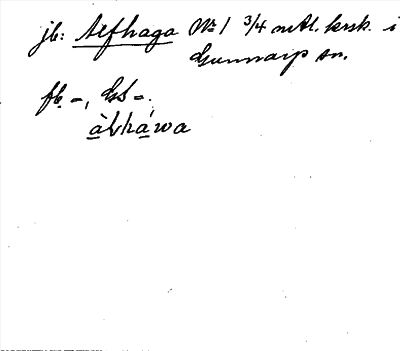 jb: Alfhaga No 1 3/4 mtl. krsk. i
Gunnarp sn.
fb -, GS -.
àlvháwa